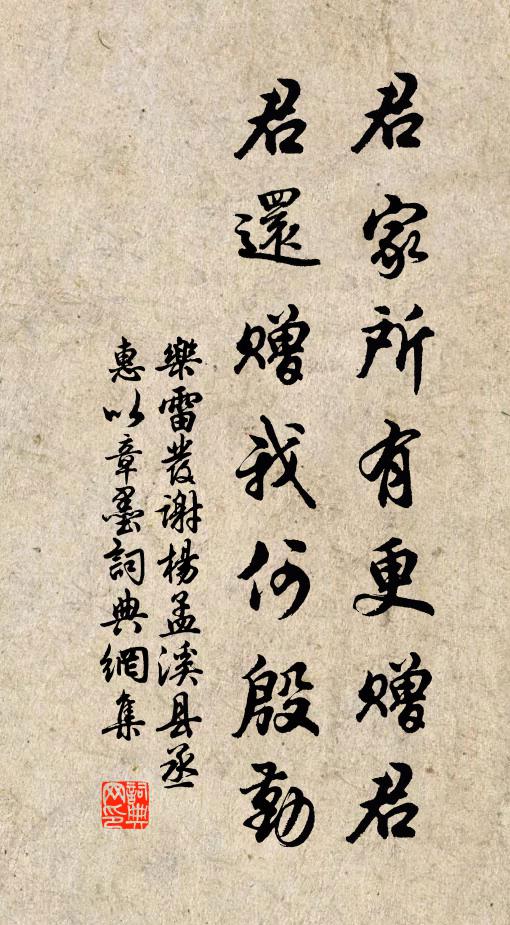 君家所有更贈君
君還贈我何殷勤
樂雷發謝楊孟溪县丞
惠以章墨詞典網集
詞典网印